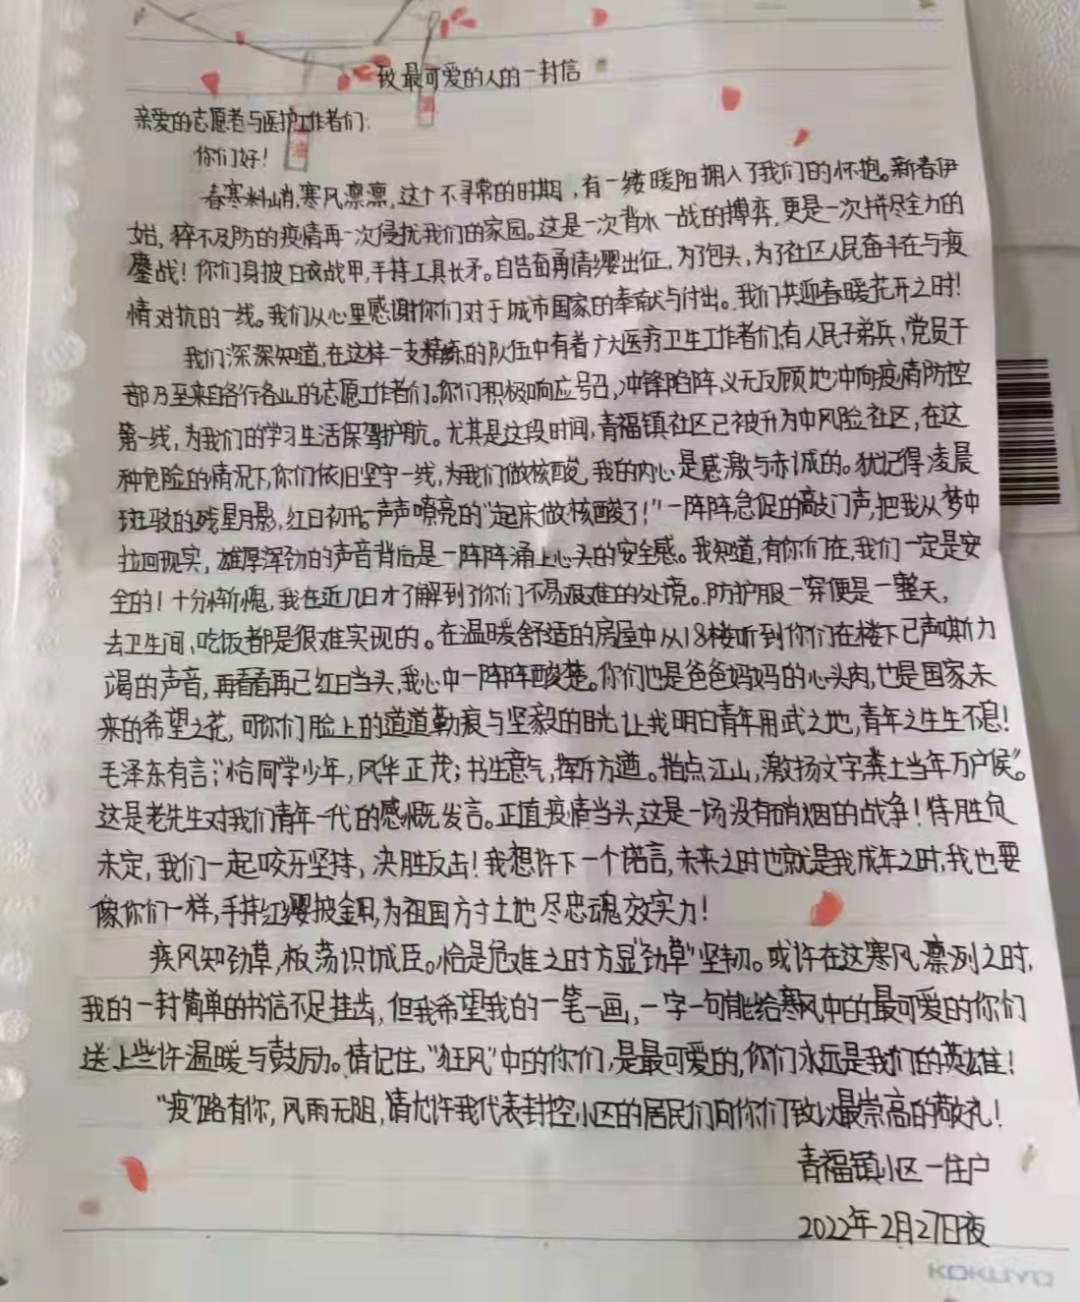 致最可爱的人的一封信
亲爱的志愿者与医护工作者们:
你们好!
春寒料峭,寒风凛凛,这个不寻常的时期,有一缕暖阳拥入了我们的怀抱。新春伊
始,猝不及防的疫情再一次侵扰我们的家园。这是一次背水一战的搏弈,更是一次拼尽全力的
鏖战!你们身披白衣战甲,手持工具长矛。自告奋勇请缨出征,为了包头,为了社区人民奋斗在与疫
情对抗的一线。我们从心里感谢你们对于城市国家的奉献与付出。我们共迎春暖花开之时!
我们深深知道,在这样一支精练的队伍中有着广大医疗卫生工作者们,有人民子弟兵,党员干
部乃至来自各行各业的志愿工作者们。你们积极响应号召,冲锋陷阵,义无反顾地冲向疫情防控
第一线,为我们的学习生活保驾护航。尤其是这段时间,青福镇社区已被升为中风险社区,在这
种危险的情况下,你们依旧坚守一线,为我们做核酸,我的内心是感激与赤诚的。犹记得凌晨
斑驳的残星月影,红日初升。声声嘹亮的“起床做核酸了!”一阵阵急促的敲门声,把我从梦中
拉回现实,雄厚浑劲的声音背后是一阵阵涌上心头的安全感。我知道,有你们在,我们一定是安
全的!十分惭愧,我在近几日才了解到了你们不易艰难的处境。防护服一穿便是一整天,
去卫生间,吃饭都是很难实现的。在温暖舒适的房屋中从18楼听到你们在楼下已声嘶力
竭的声音,再看看再已红日当头,我心中一阵阵酸楚。你们也是爸爸妈妈的心头肉,也是国家未
来的希望之花,可你们脸上的道道勒痕与坚毅的目光让我明白青年用武之地,青年之生生不息!
毛泽东有言:“恰同学少年,风华正茂;书生意气,挥斥方遒。指点江山,激扬文字,粪土当年万户侯”。
这是老先生对我们青年一代的感慨发言。正值疫情当头,这是一场没有硝烟的战争!待胜负
未定,我们一起咬牙坚持,决胜反击!我想许下一个诺言,未来之时也就是我成年之时,我也要
像你们一样,手持红缨披金甲,为祖国方寸土地尽忠魂效实力!
疾风知劲草,板荡识诚臣。恰是危难之时方显“劲草”坚韧。或许在这寒风凛冽之时,
我的一封简单的书信不足挂齿,但我希望我的一笔一画,一字一句能给寒风中的最可爱的你们
送上些许温暖与鼓励。请记住,“狂风”中的你们,是最可爱的,你们永远是我们的英雄!
“疫”路有你,风雨无阻,请允许我代表封控小区的居民们向你们致以最崇高的敬礼!
青福镇小区一住户
2022年2月27日夜
KOKUYO